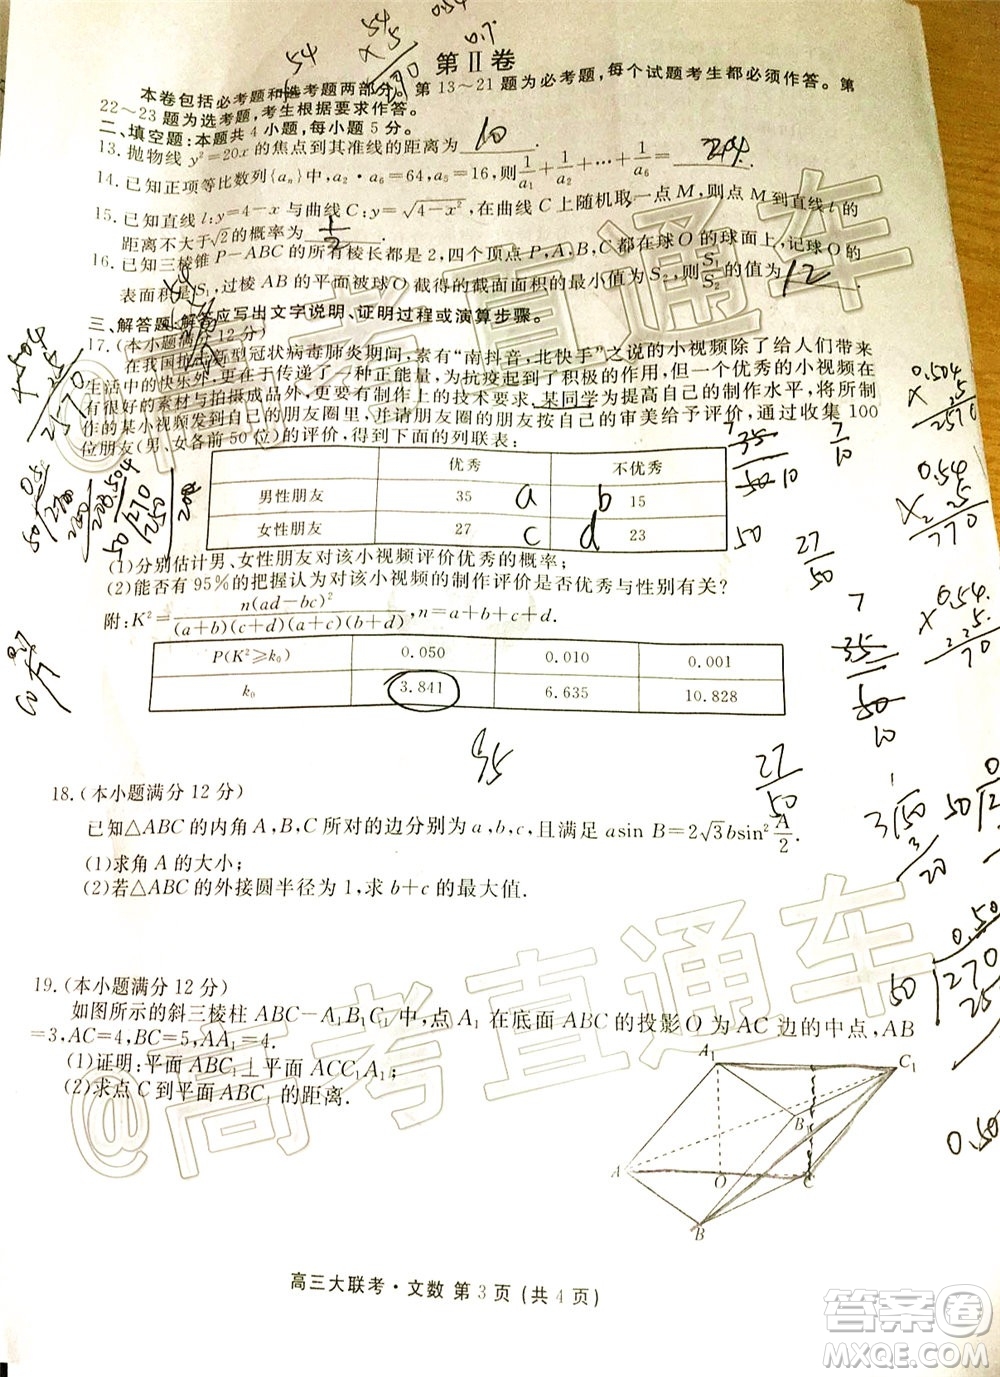 第Ⅱ卷
本卷包括必考题和选考题两部分。第13～21题为必考题,每个试题考生都必须作答。第
22～23题为选考题,考生根据要求作答。
二、填空题:本题共4小题,每小题5分。
13.抛物线 y²=20x 的焦点到其准线的距离为 10
14.已知正项等比数列{aₙ}中,a₂·a₆=64,a₅=16,则1/a₁+1/a₂+…+1/a₆=
15.已知直线 l:y=4-x 与曲线 C:y=√(4-x²),在曲线 C 上随机取一点 M,则点 M 到直线 l 的
距离不大于√2的概率为 1/2
16.已知三棱锥 P-ABC 的所有棱长都是 2,四个顶点 P,A,B,C 都在球 O 的球面上,记球 O 的
表面积是 S₁,过棱 AB 的平面被球 O 截得的截面面积的最小值为 S₂,则S₁/S₂的值为 12
三、解答题:解答应写出文字说明、证明过程或演算步骤。
17.(本小题满分12分)
在我国抗击新型冠状病毒肺炎期间,素有“南抖音,北快手”之说的小视频除了给人们带来
生活中的快乐外,更传递了一种正能量,为抗疫起到了积极的作用,但一个优秀的小视频在
有很好的素材与拍摄成品外,更要有制作上的技术要求.某同学为提高自己的制作水平,将所制
作的某小视频分享到自己的朋友圈里,并请朋友按自己的审美给予评价,通过收集100
位朋友(男、女各前50位)的评价,得到下面的列联表:
优秀 不优秀
男性朋友 35 a b 15
女性朋友 27 c d 23
(1)分别估计男、女性朋友对该小视频评价优秀的概率;
(2)能否有95%的把握认为对该小视频的制作评价是否优秀与性别有关?
附:K²=n(ad-bc)²/(a+b)(c+d)(a+c)(b+d),n=a+b+c+d.
P(K²≥k₀) 0.050 0.010 0.001
k₀ 3.841 6.635 10.828
18.(本小题满分12分)
已知△ABC 的内角 A,B,C 所对的边分别为 a,b,c,且满足 a sin B=2√3 b sin² A/2.
(1)求角 A 的大小;
(2)若△ABC 的外接圆半径为1,求 b+c 的最大值.
19.(本小题满分12分)
如图所示的斜三棱柱 ABC-A₁B₁C₁ 中,点 A₁ 在底面 ABC 的投影 O 为 AC 边的中点,AB
=3,AC=4,BC=5,AA₁=4.
(1)证明:平面 ABC₁⊥平面 ACC₁A₁;
(2)求点 C 到平面 ABC₁ 的距离.
A₁ C₁
B₁
A O C
B
高三大联考·文数 第3页(共4页)
@高考直通车
@高考直通车
答案卷
MXQE.COM